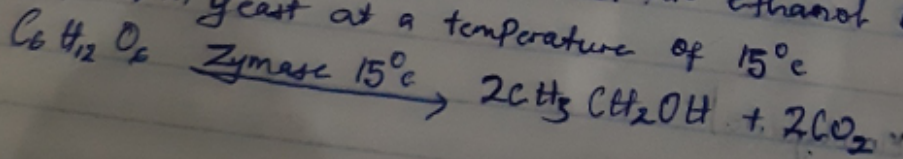 yeast at a temperature of 15°c
C6H12O6 Zymase 15°c → 2CH3CH2OH + 2CO2